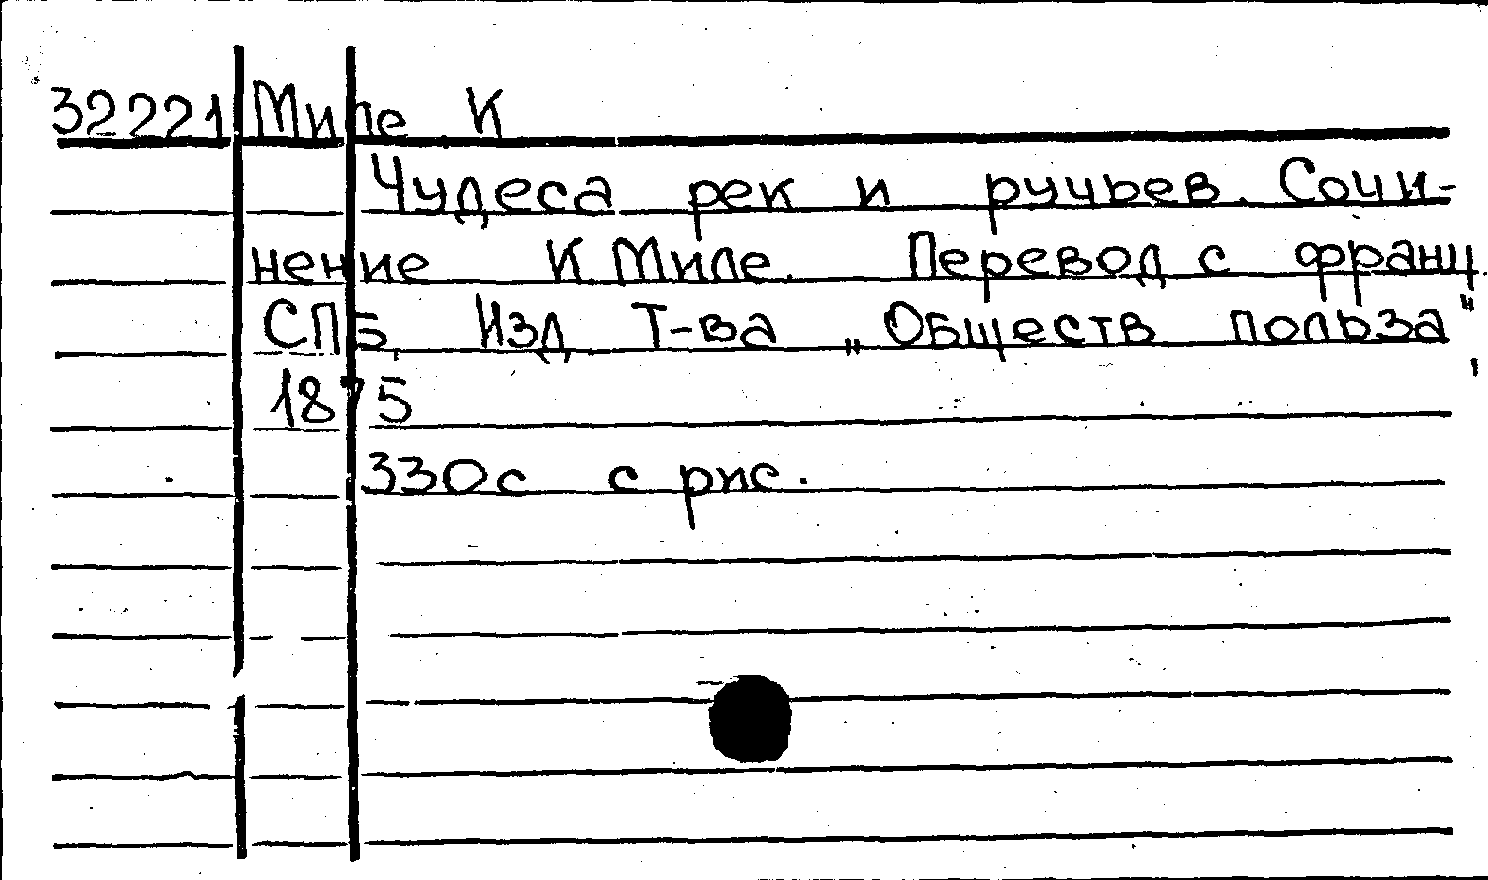 32221 Миле К
Чудеса рек и ручьев. Сочи-
нение К Миле. Перевод с франц.
СПБ, Изд Т-ва „Обществ польза",
1875
330с с рис.